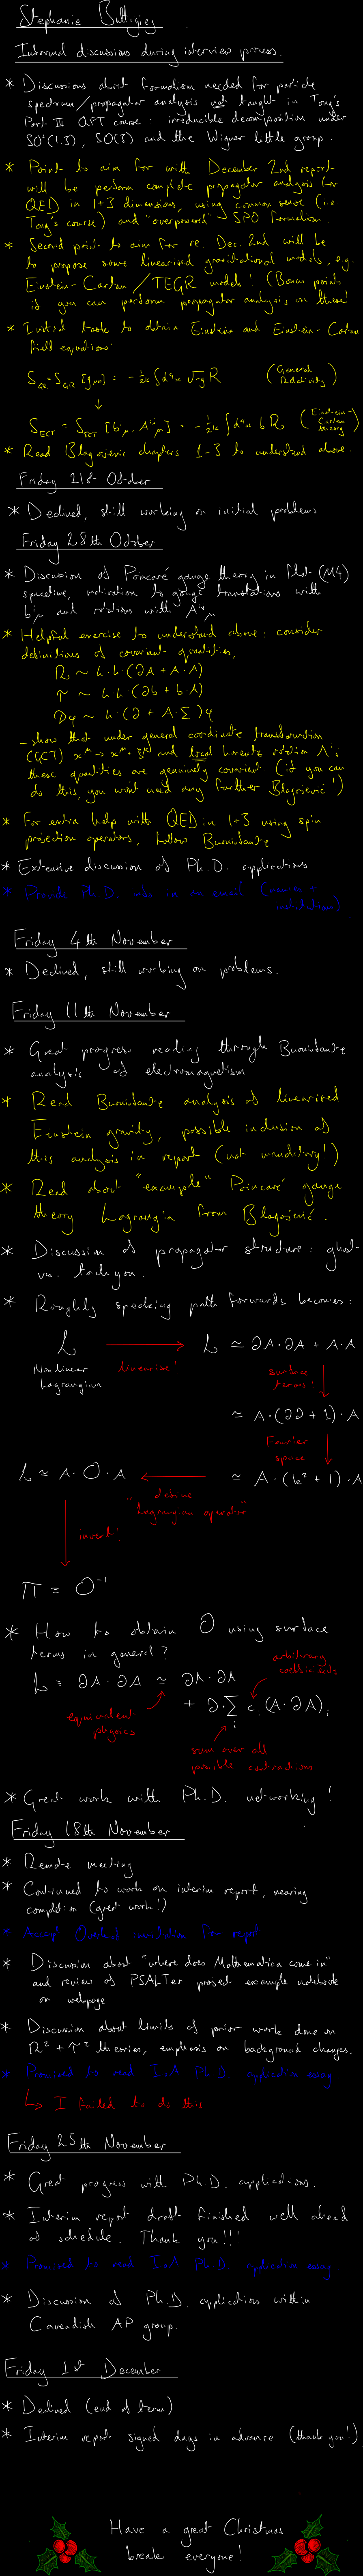 Stephanie Buttigieg
Informal discussions during interview process.
* Discussions about formalism needed for particle
spectrum/propagator analysis not taught in Tong's
Part III QFT course: irreducible decomposition under
SO⁺(1,3), SO(3) and the Wigner little group.
* Point to aim for with December 2nd report
will be perform complete propagator analysis for
QED in 1+3 dimensions, using common sense (i.e.
Tong's course) and "overpowered" SPO formalism.
* Second point to aim for re. Dec. 2nd will be
to propose some linearised gravitational models, e.g.
Einstein-Cartan/TEGR models! (Bonus points
if you can perform propagator analysis on these)
* Initial task to obtain Einstein and Einstein-Cartan
field equations:
S_GR = S_GR [g_μν] = -1/2κ ∫d⁴x √-g R (General Relativity)
↓
S_ECT = S_ECT [b^i_μ, A^ij_μ] = -1/2κ ∫d⁴x b R (Einstein-Cartan theory)
* Read Blagojevic chapters 1-3 to understand above.
Friday 21st October
* Declined, still working on initial problems
Friday 28th October
* Discussion of Poincaré gauge theory in flat (M4)
spacetime, motivation to gauge translations with
b^i_μ and rotations with A^ij_μ
* Helpful exercise to understand above: consider
definitions of covariant quantities,
R ~ h·h·(∂A + A·A)
T ~ h·h·(∂b + b·A)
Dφ ~ h·(∂ + A·Σ)φ
- show that under general coordinate transformation
(GCT) x^μ → x^μ + ξ^μ and local Lorentz rotation Λ^i_j
these quantities are genuinely covariant. (if you can
do this, you won't need any further Blagojević!)
* For extra help with QED in 1+3 using spin
projection operators, follow Buoninfante
* Extensive discussion of Ph.D. applications
* Provide Ph.D. info in an email (names +
institutions)
Friday 4th November
* Declined, still working on problems.
Friday 11th November
* Great progress reading through Buoninfante
analysis of electromagnetism
* Read Buoninfante analysis of linearised
Einstein gravity, possible inclusion of
this analysis in report (not mandatory!)
* Read about "example" Poincaré gauge
theory Lagrangian from Blagojević.
* Discussion of propagator structure: ghost
vs. tachyon.
* Roughly speaking path forwards becomes:
L → L ≃ ∂A·∂A + A·A
Nonlinear Lagrangian
linearise!
surface terms!
≃ A·(∂∂+1)·A
Fourier space
L ≃ A·O·A ← ≃ A·(k²+1)·A
"define Lagrangian operator"
invert!
Π = O⁻¹
* How to obtain O using surface
terms in general?
L = ∂A·∂A ≃ ∂A·∂A
+ ∂·Σ_i c_i (A·∂A)_i
arbitrary coefficients
equivalent physics
sum over all
possible contractions
* Great work with Ph.D. networking!
Friday 18th November
* Remote meeting
* Continued to work on interim report, nearing
completion (great work!)
* Accept Overleaf invitation for report
* Discussion about "where does Mathematica come in"
and review of PSALTer project example notebook
on webpage
* Discussion about limits of prior work done on
R² + T² theories, emphasis on background changes.
* Promised to read Ph.D. application essay
↳ I failed to do this
Friday 25th November
* Great progress with Ph.D. applications.
* Interim report draft finished well ahead
of schedule. Thank you!!!
* Promised to read Ph.D. application essay
* Discussion of Ph.D. applications within
Cavendish AP group.
Friday 1st December
* Declined (end of term)
* Interim report signed days in advance (thank you!)
Have a great Christmas
break everyone!